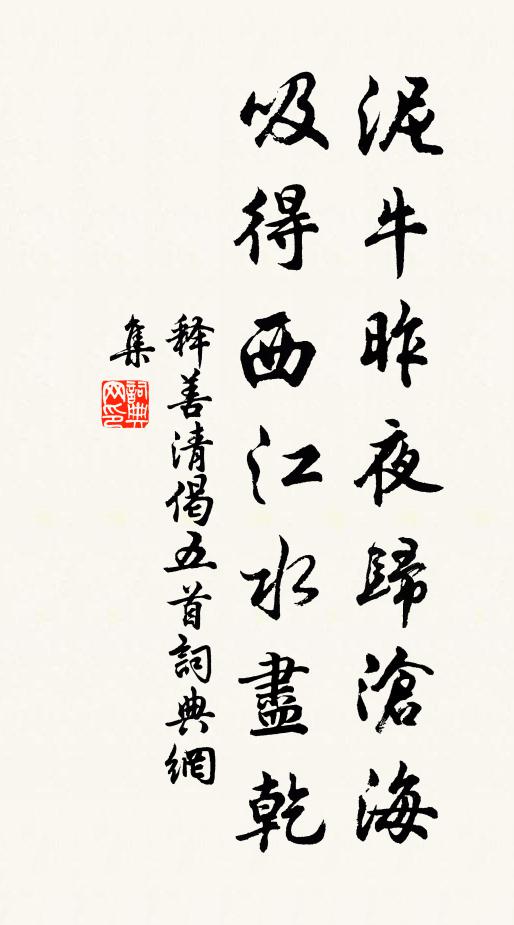 泥牛昨夜歸滄海
吸得西江水盡乾
释善清偈五首詞典網
集
詞典
网印